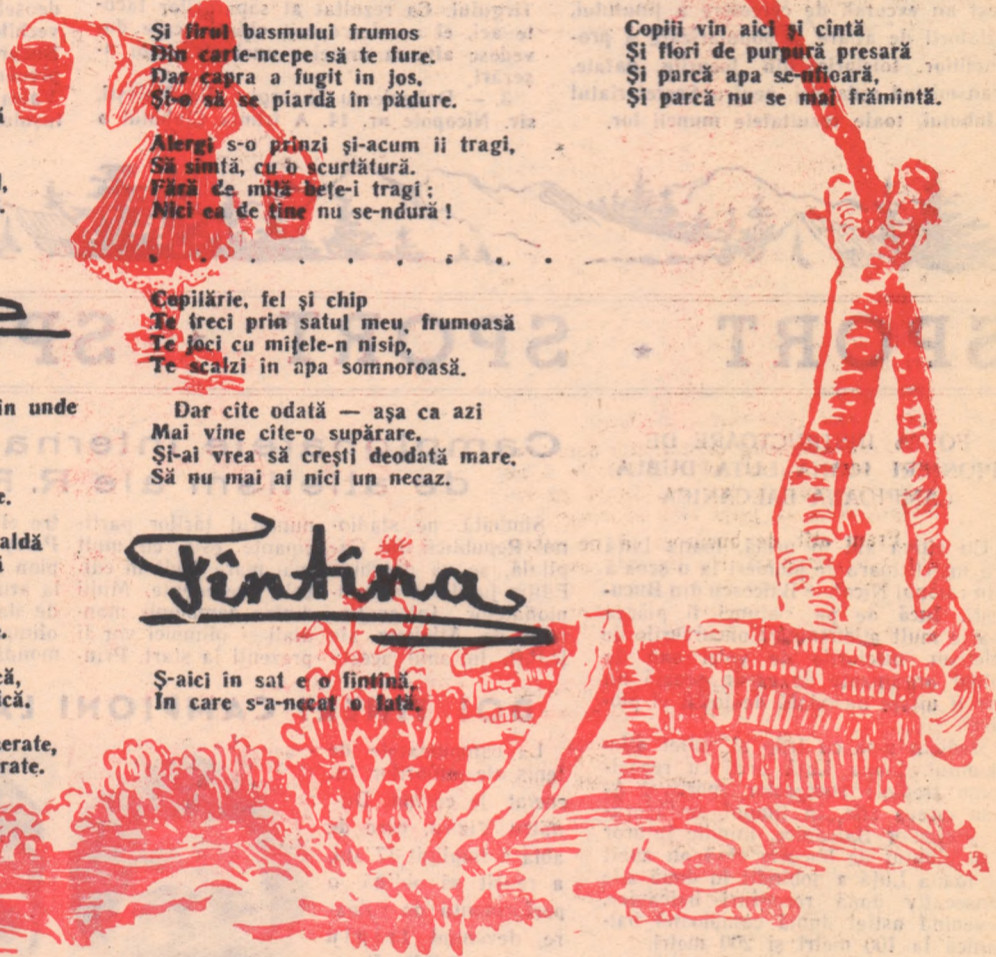 Și firul basmului frumos
Din carte-ncepe să te fure.
Dar capra a fugit in jos,
Și-o să se piardă în pădure.
Alergi s-o prinzi și-acum ii tragi,
Să simtă, cu o scurtătură.
Fără de milă bețe-i tragi:
Nici ea de tine nu se-ndură!
. . . . . . . . .
Copilărie, fel și chip
Te treci prin satul meu, frumoasă
Te joci cu mițele-n nisip,
Te scalzi in apa somnoroasă.
Dar cite odată — așa ca azi
Mai vine cite-o supărare.
Și-ai vrea să crești deodată mare.
Să nu mai ai nici un necaz.
Fîntîna
Ș-aici in sat e o fintină,
În care s-a-necat o fată.
Copiii vin aici și cîntă
Și flori de purpură presară
Și parcă apa se-nfioară,
Și parcă nu se mai frămintă.
in unde
e.
aldă
i
că,
ică,
erate,
rate.